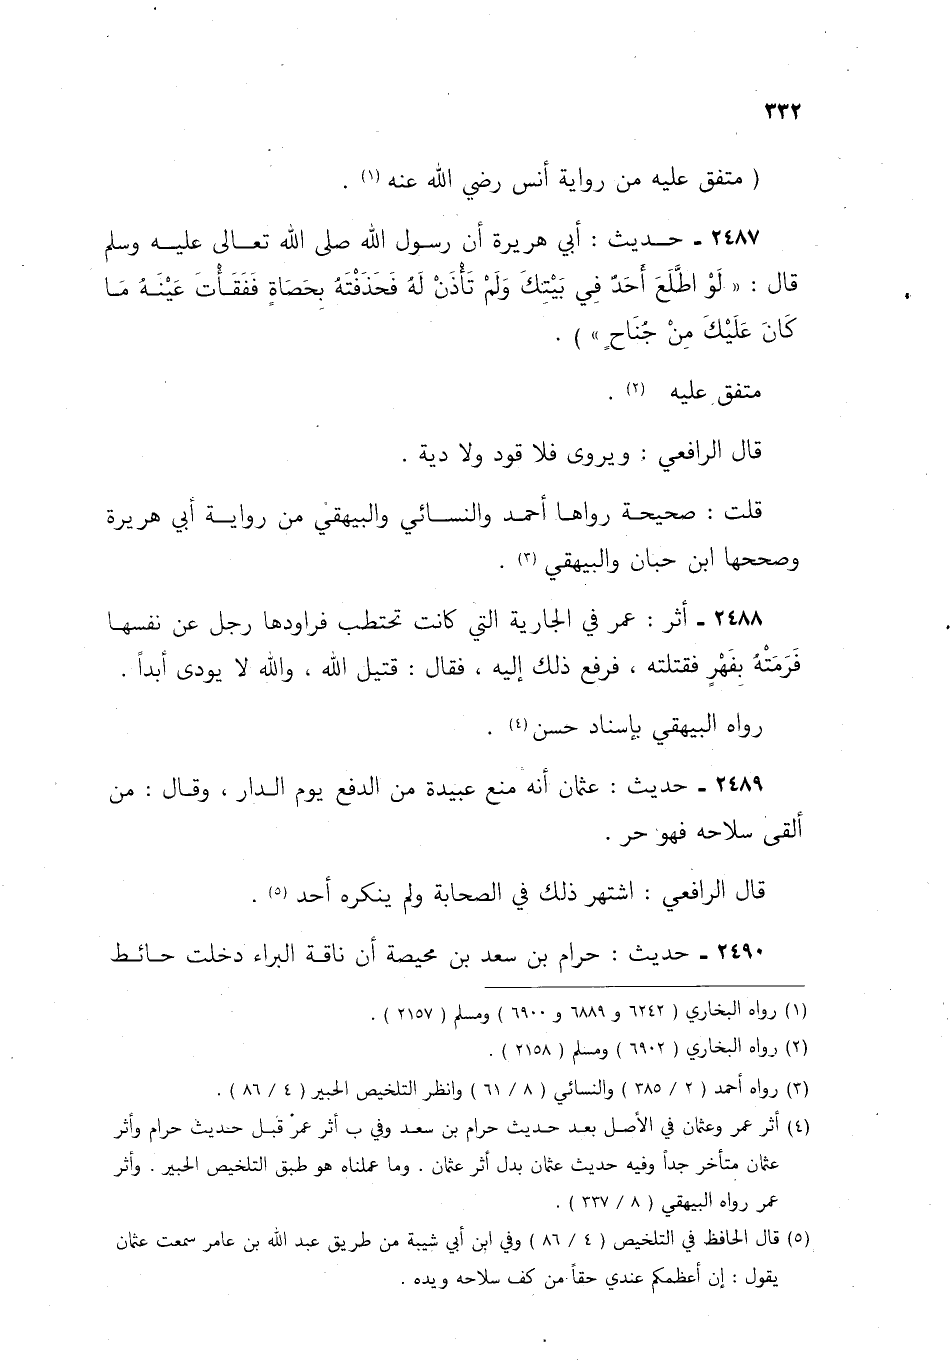 ٣٣٢
( متفق عليه من رواية أنس رضي الله عنه (١) .
٢٤٨٧ - حـديث : أبي هريرة أن رسول الله صلى الله تعالى عليه وسلم
قال : « لَوْ اطَّلَعَ أَحَدٌ فِي بَيْتِكَ وَلَمْ تَأْذَنْ لَهُ فَحَذَفْتَهُ بِحَصَاةٍ فَفَقَأْتَ عَيْنَهُ مَا
كَانَ عَلَيْكَ مِنْ جُنَاحٍ » ) .
متفق عليه (٢) .
قال الرافعي : ويروى فلا قود ولا دية .
قلت : صحيحة رواها أحمد والنسائي والبيهقي من رواية أبي هريرة
وصححها ابن حبان والبيهقي (٣) .
٢٤٨٨ - أثر : عمر في الجارية التي كانت تحتطب فراودها رجل عن نفسها
فَرَمَتْهُ بِفَهْرٍ فقتلته ، فرفع ذلك إليه ، فقال : قتيل الله ، والله لا يودى أبداً .
رواه البيهقي بإسناد حسن (٤) .
٢٤٨٩ - حديث : عثمان أنه منع عبيدة من الدفع يوم الدار ، وقال : من
ألقى سلاحه فهو حر .
قال الرافعي : اشتهر ذلك في الصحابة ولم ينكره أحد (٥) .
٢٤٩٠ - حديث : حرام بن سعد بن محيصة أن ناقة البراء دخلت حائط
(١) رواه البخاري ( ٦٢٤٢ و ٦٨٨٩ و ٦٩٠٠ ) ومسلم ( ٢١٥٧ ) .
(٢) رواه البخاري ( ٦٩٠٢ ) ومسلم ( ٢١٥٨ ) .
(٣) رواه أحمد ( ٢ / ٣٨٥ ) والنسائي ( ٨ / ٦١ ) وانظر التلخيص الحبير ( ٤ / ٨٦ ) .
(٤) أثر عمر وعثمان في الأصل بعد حديث حرام بن سعد وفي ب أثر عمر قبل حديث حرام وأثر
عثمان متأخر جداً وفيه حديث عثمان بدل أثر عثمان . وما عملناه هو طبق التلخيص الحبير . وأثر
عمر رواه البيهقي ( ٨ / ٣٣٧ ) .
(٥) قال الحافظ في التلخيص ( ٤ / ٨٦ ) وفي ابن أبي شيبة من طريق عبد الله بن عامر سمعت عثمان
يقول : إن أعظمكم عندي حقاً من كف سلاحه ويده .